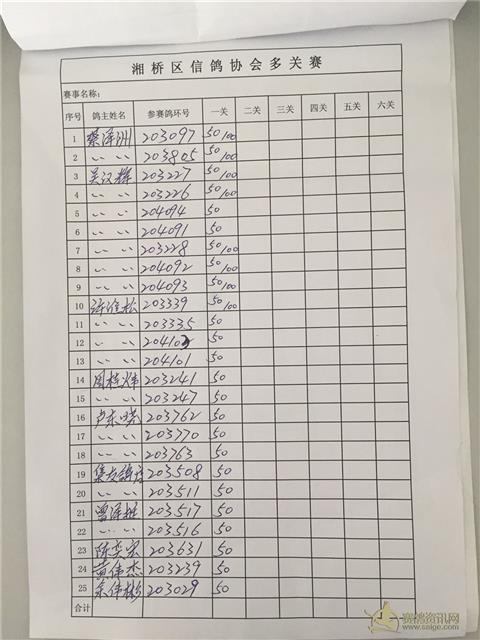 湘桥区信鸽协会多关赛
赛事名称:
序号 鸽主姓名 参赛鸽环号 一关 二关 三关 四关 五关 六关
1 蔡泽洲 203097 50/100
2 〃 〃 203805 50/100
3 吴汉辉 203227 50/100
4 〃 〃 203226 50/100
5 〃 〃 204094 50
6 〃 〃 204091 50
7 〃 〃 203228 50/100
8 〃 〃 204092 50/100
9 〃 〃 204093 50/100
10 许准松 203339 50/100
11 〃 〃 203335 50
12 〃 〃 204102 50
13 〃 〃 204101 50
14 周桂 203241 50
15 〃 〃 203247 50
16 卢东 203762 50
17 〃 〃 203770 50
18 〃 〃 203763 50
19 集友鸽 203508 50
20 〃 〃 203511 50
21 曾泽 203517 50
22 〃 〃 203516 50
23 陈奕宏 203631 50
24 黄伟杰 203239 50
25 余伟彬 203029 50
合计
赛鸽资讯网
www.saige.com